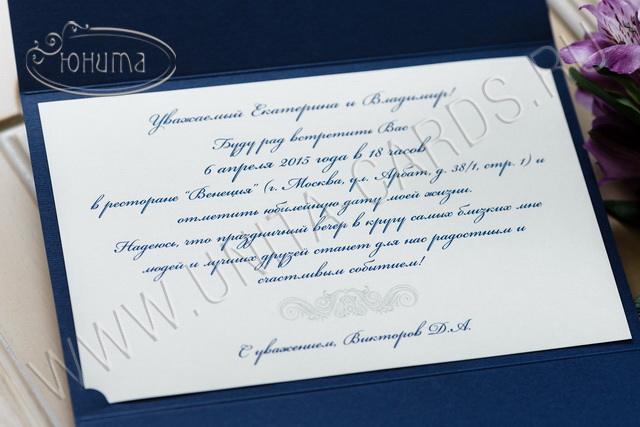 Юнита
Уважаемый Екатерина и Владимир!
Буду рад встретить Вас
6 апреля 2015 года в 18 часов
в ресторане "Венеция" (г. Москва, ул. Арбат, д. 38/1, стр. 1) и
отметить юбилейную дату моей жизни.
Надеюсь, что праздничный вечер в кругу самых близких мне
людей и лучших друзей станет для нас радостным и
счастливым событием!
С уважением, Викторов Д.А.
WWW.UNITA-CARDS.RU